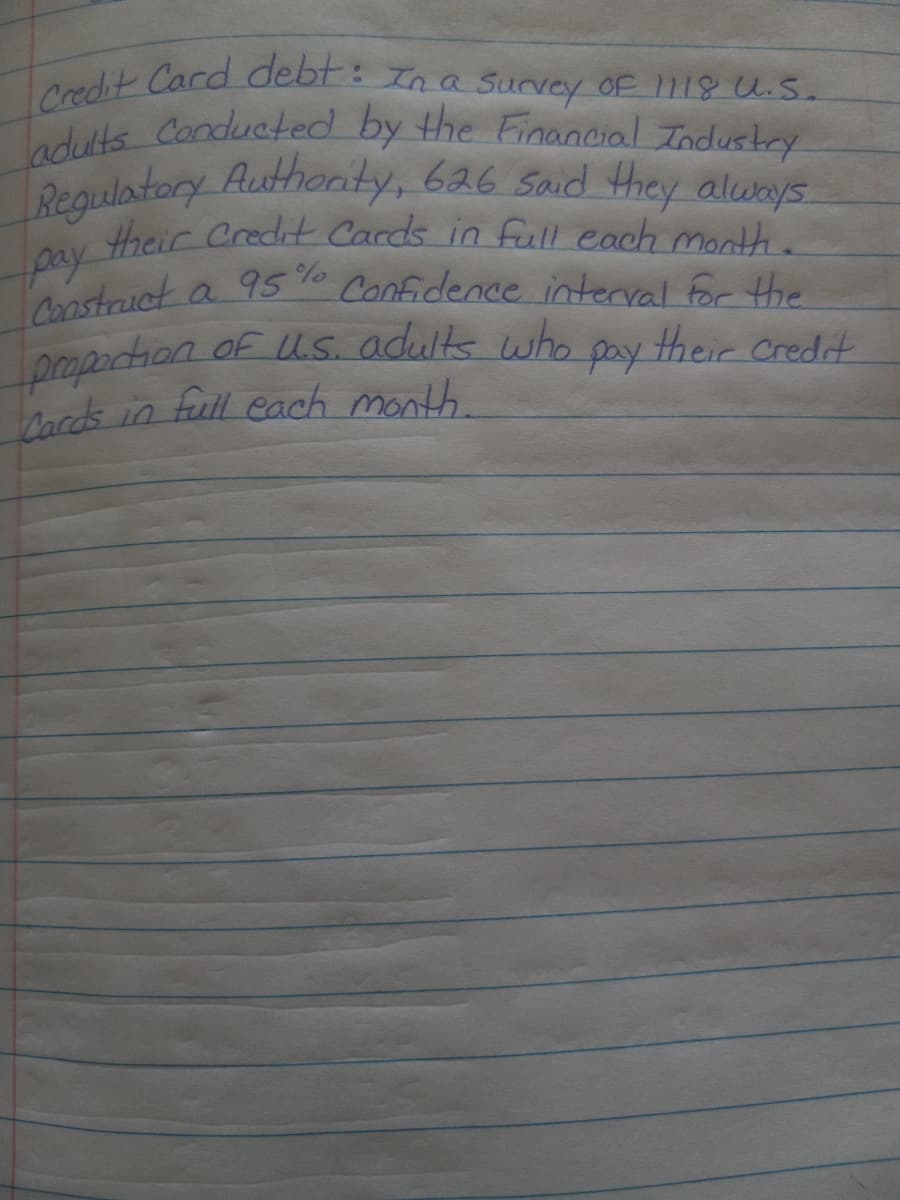 Credit Card debt: In a Survey OF 1118 U.S.
adults Conducted by the Financial Industry
Regulatory Authority, 626 Said they always
pay their Credit Cards in full each month.
Construct a 95% Confidence interval for the
proportion OF U.S. adults who pay their credit
Cards in full each month.